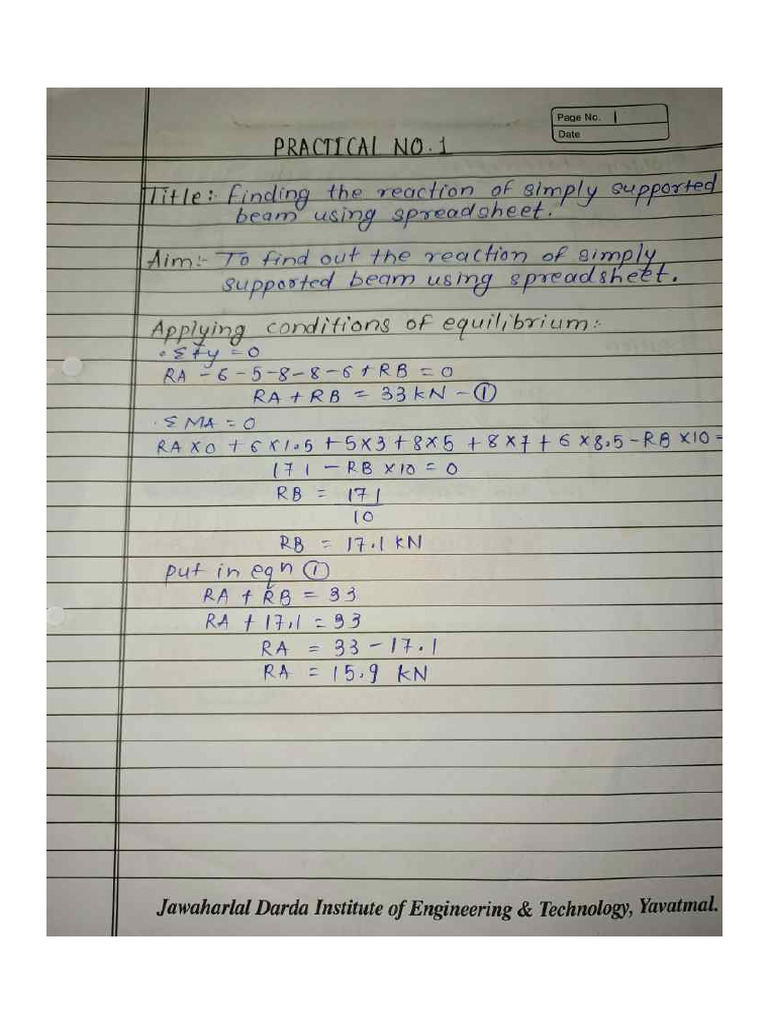 Page No. 1
Date
PRACTICAL NO. 1
Title:- Finding the reaction of simply supported
beam using spreadsheet.
Aim:- To find out the reaction of simply
supported beam using spreadsheet.
Applying conditions of equilibrium:-
• Σ Fy = 0
RA - 6 - 5 - 8 - 8 - 6 + RB = 0
RA + RB = 33 KN - ①
• Σ MA = 0
RA X 0 + 6 X 1.5 + 5 X 3 + 8 X 5 + 8 X 7 + 6 X 8.5 - RB X 10 =
171 - RB X 10 = 0
RB = 171
10
RB = 17.1 KN
Put in eqn ①
RA + RB = 33
RA + 17.1 = 33
RA = 33 - 17.1
RA = 15.9 KN
Jawaharlal Darda Institute of Engineering & Technology, Yavatmal.